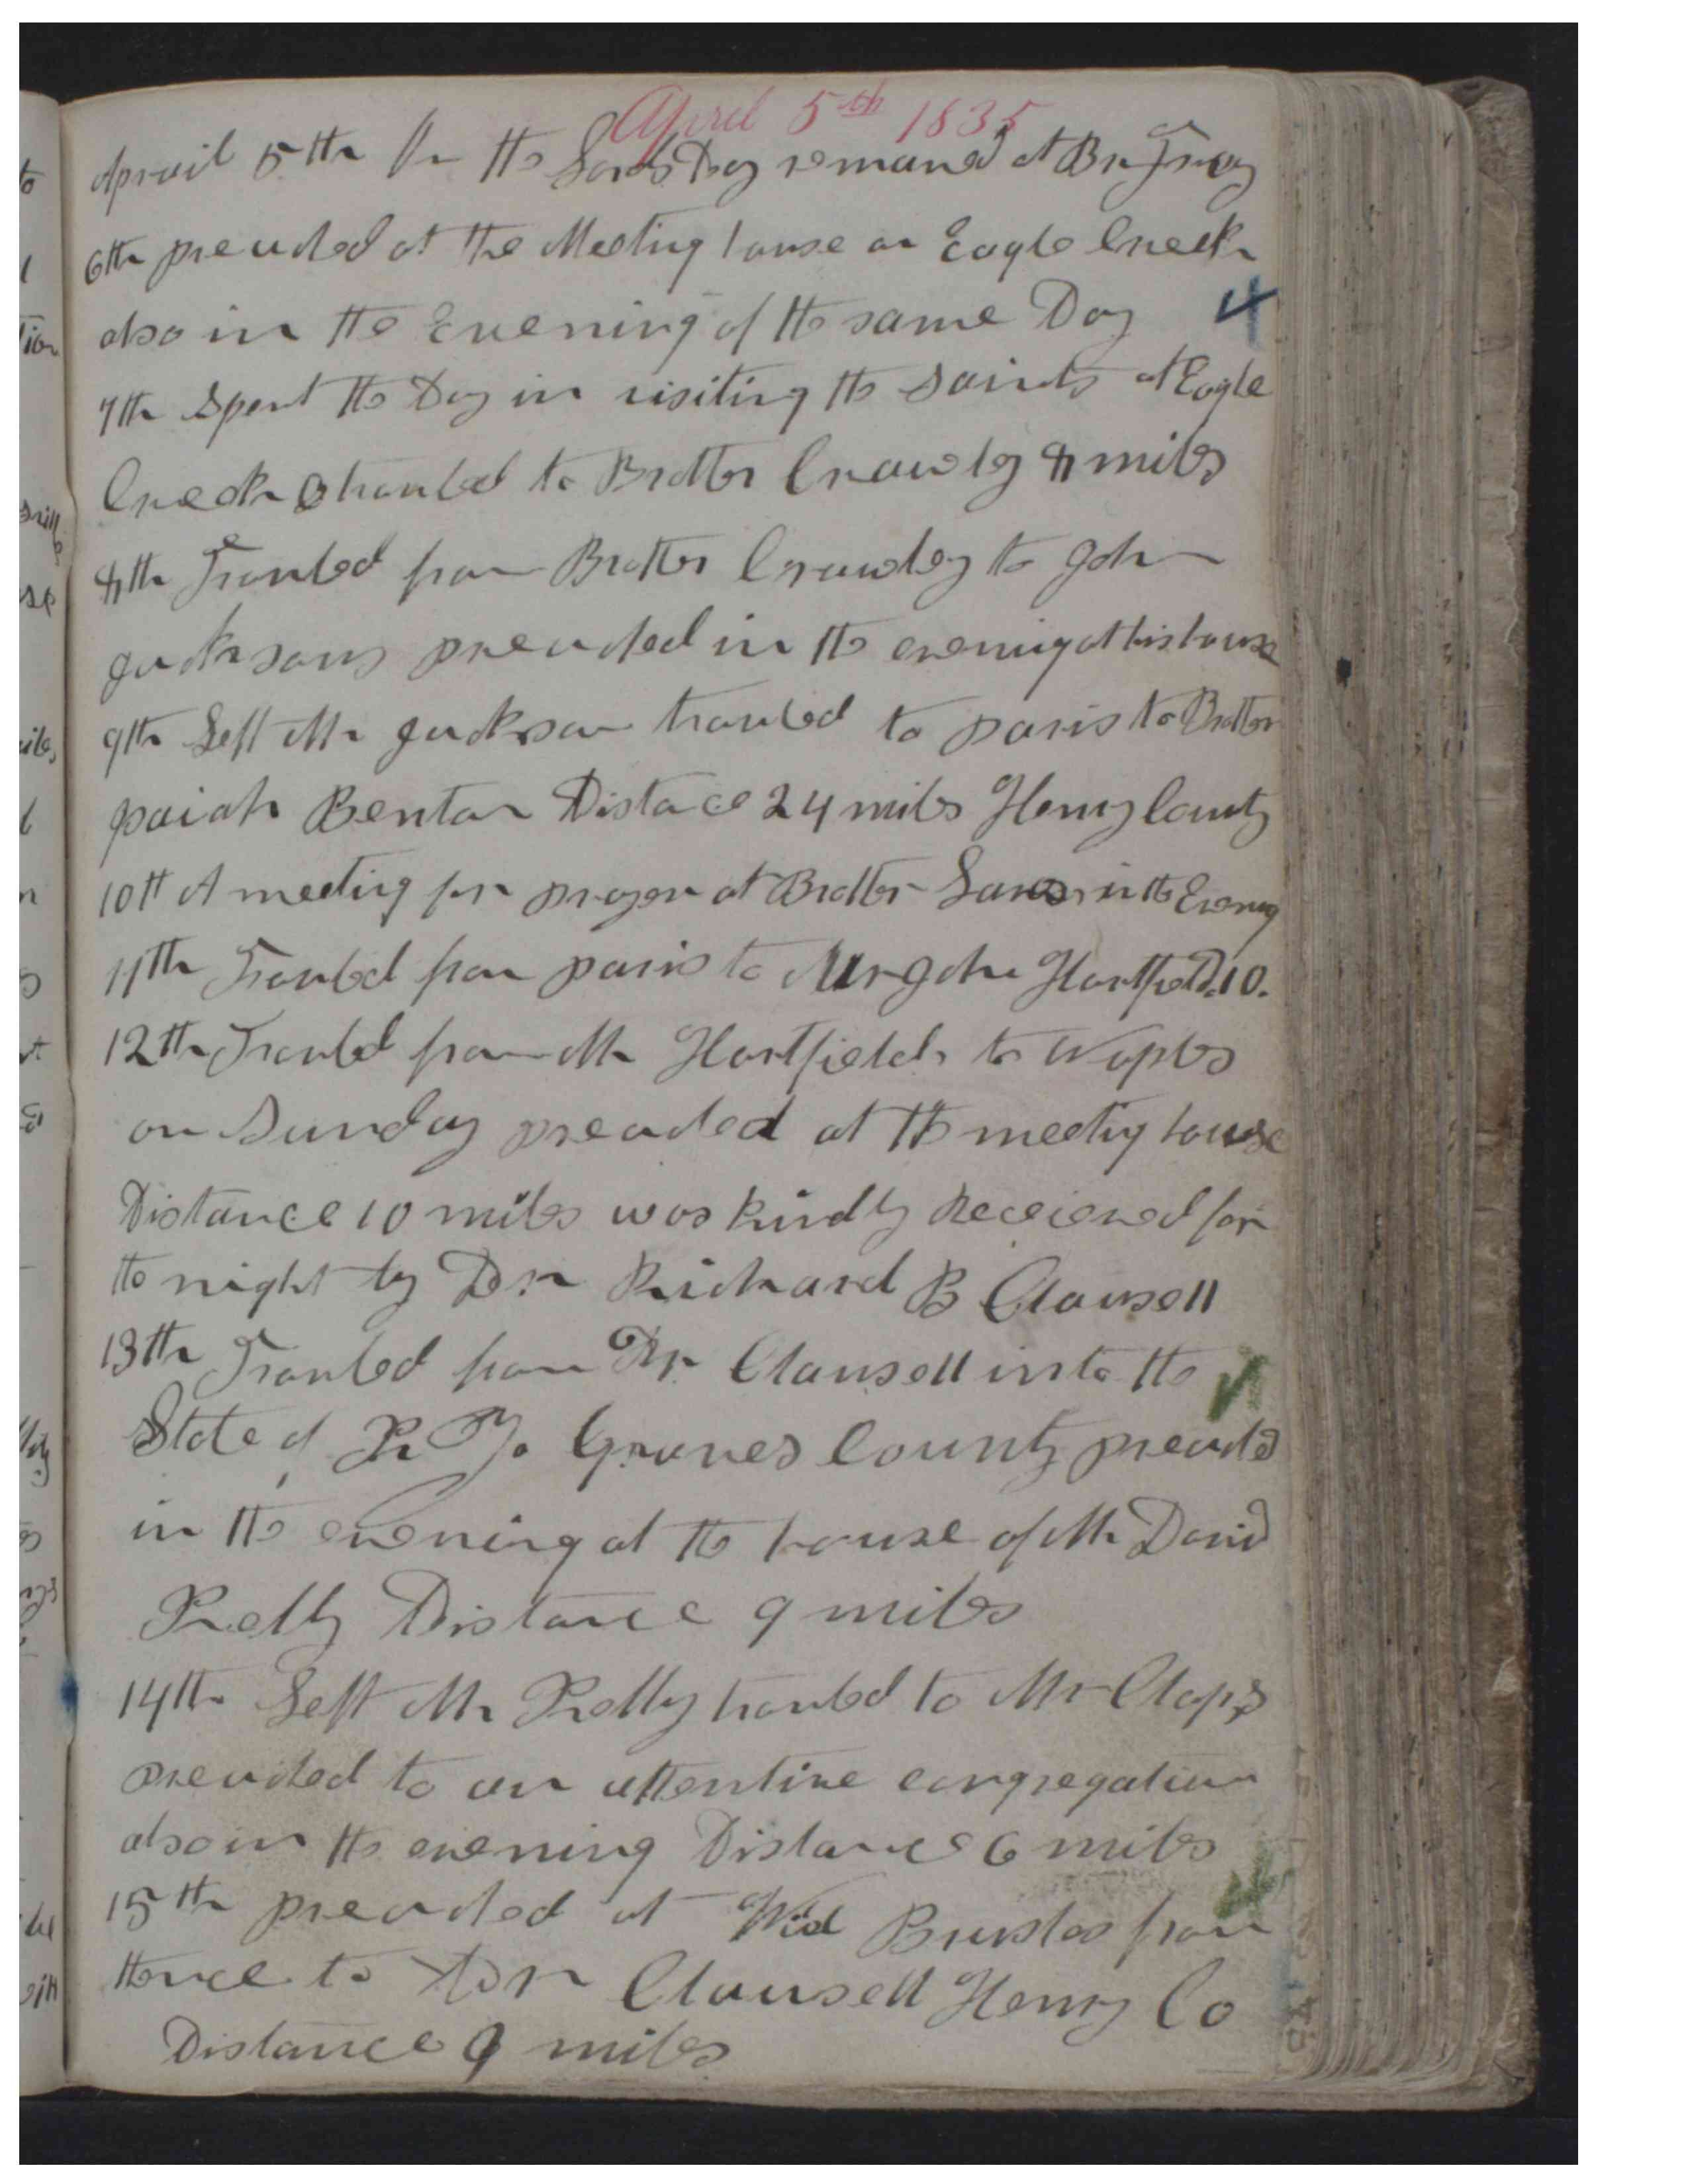 April 5th 1835
Aprail 5th On the Lords Day remaned at Br Frey
6th preached at the Meeting house on Eagle Creek
also in the Evening of the same Day 4
7th Spent the Day in visiting the Saints at Eagle
Creek & traveled to Brother Crawley 8 miles
8th Traveled from Brother Crawley to John
Jacksons preached in the evening at his house
9th Left Mr Jackson traveled to paris to Brother
Benton Distace 24 miles Henry County
10th A meeting for prayer at Brother in the Evening
11th Traveled from paris to Mr John Hartfield 10.
12th Traveled from Mr Hartfields to Waples
on Sunday preached at the meeting house
Distance 10 miles was kindly Receieved for
the night by Dr Richard B Clausell
13th Traveled from Dr. Clausell into the
State of K Y. Graves County preached
in the evening at the house of Mr David
Kelly Distance 9 miles
14th Left Mr Kelly traveled to Mr Claps
preached to an attentive congregation
also in the evening Distance 6 miles
15th preached at Wid from
thence to Dr Clausell Henry Co
Distance 9 miles